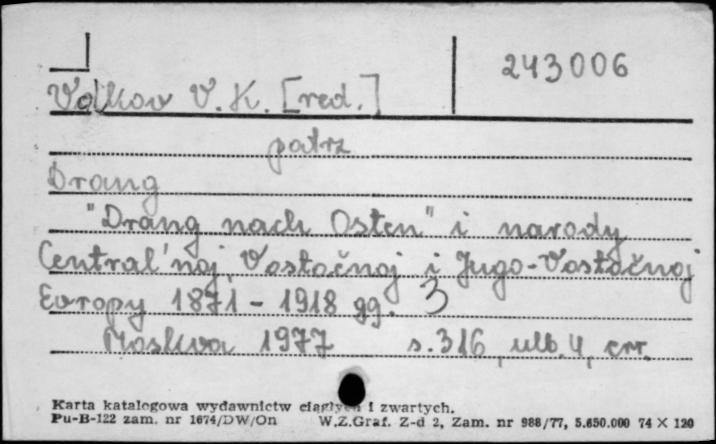 243006
Volkov V. K. [red.]
patrz
Drang
"Drang nach Osten" i narody
Central'noj, Vostočnoj i Jugo-Vostočnoj
Evropy 1871-1918 gg. 3
Moskva 1977 s. 316, ulb. 4,
Karta katalogowa wydawnictw ciągłych i zwartych.
Pu-B-122 zam. nr 1674/DW/On W.Z.Graf. Z-d 2, Zam. nr 988/77, 5.650.000 74 X 120